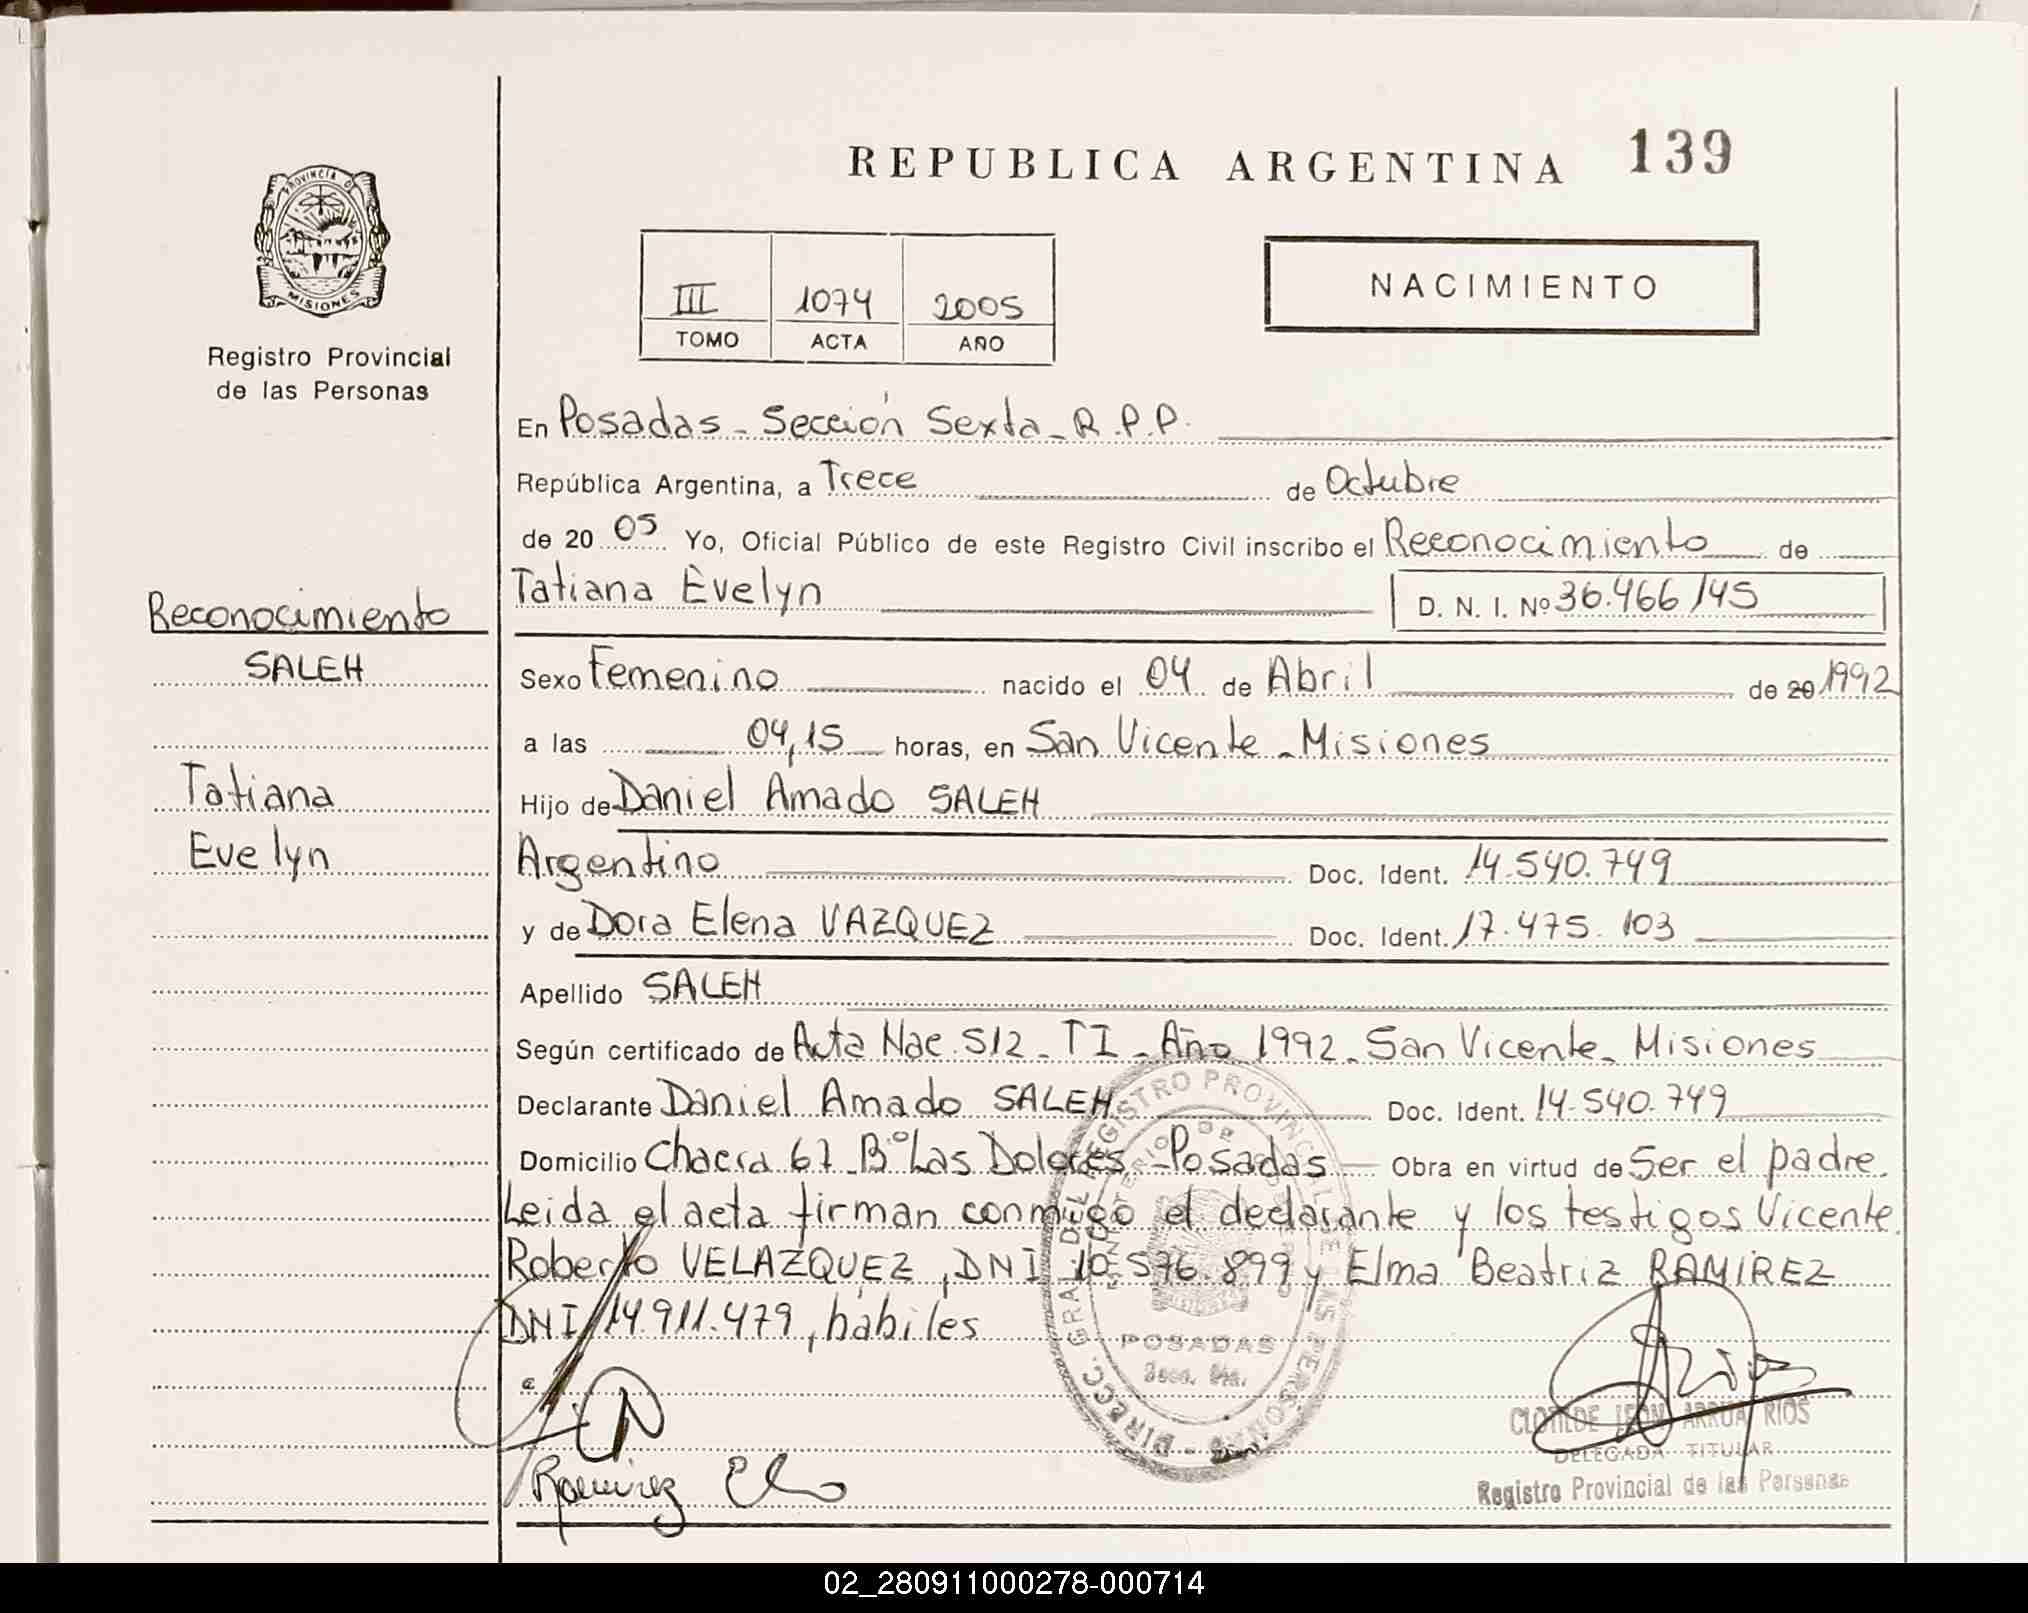 REPUBLICA ARGENTINA 139
PROVINCIA DE
MISIONES
Registro Provincial
de las Personas
III 1074 2005
TOMO ACTA AÑO
NACIMIENTO
En Posadas - Sección Sexta - R.P.P.
República Argentina, a Trece de Octubre
de 20 05 Yo, Oficial Público de este Registro Civil inscribo el Reconocimiento de
Tatiana Evelyn D. N. I. Nº 36.466 145
Reconocimiento
SALEH
Tatiana
Evelyn
Sexo Femenino nacido el 04 de Abril de 20 1992
a las 04,15 horas, en San Vicente - Misiones
Hijo de Daniel Amado SALEH
Argentino Doc. Ident. 14.540.749
y de Dora Elena VAZQUEZ Doc. Ident. 17.475.103
Apellido SALEH
Según certificado de Acta Nac. 512 - TI - Año 1992 - San Vicente - Misiones
Declarante Daniel Amado SALEH Doc. Ident. 14.540.749
Domicilio Chacra 67 - Bº Las Dolores - Posadas - Obra en virtud de Ser el padre.
Leida el acta firman conmigo el declarante y los testigos Vicente
Roberto VELAZQUEZ, DNI 10.576.899 y Elma Beatriz RAMIREZ
DNI 14.911.479, hábiles
DIRECC. GRAL. DEL REGISTRO PROVINCIAL DE LAS PERSONAS
POSADAS
Secc. 6ta.
Ramirez
CLOTILDE LEON ARRUA RIOS
DELEGADA TITULAR
Registro Provincial de las Personas
02_280911000278-000714